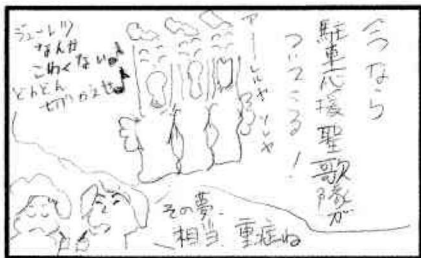 今なら
駐車応援聖歌隊が
ついてくる！
アーレルヤ ソレヤ
ジューレツ
なんか
こわくない♪
どんどん
切りかえせ♪
その夢、
相当重症ね